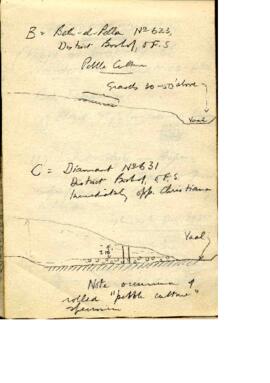 B = Beth-el-Pella No 623,
District Boshof, O.F.S
Pebble Culture
Gravels 30-50' above
Vaal
C = Diamant No 631
District Boshof, O.F.S
Immediately opp. Christiana
Vaal
Note occurrence of
rolled "pebble culture"
specimen